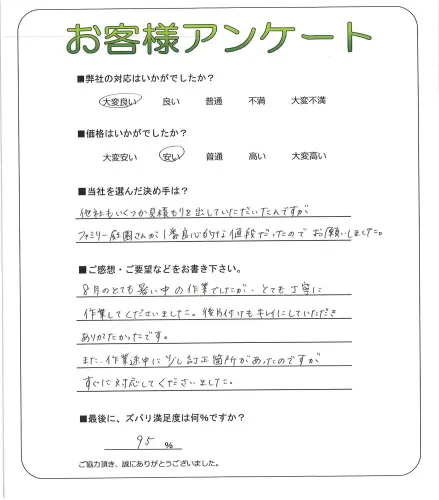 お客様アンケート
■弊社の対応はいかがでしたか?
大変良い 良い 普通 不満 大変不満
■価格はいかがでしたか?
大変安い 安い 普通 高い 大変高い
■当社を選んだ決め手は?
他社もいくつか見積もりを出していただいたんですが
ファミリー庭園さんが1番良心的な値段だったので お願いしました。
■ご感想・ご要望などをお書き下さい。
8月のとても暑い中の作業でしたが、とても丁寧に
作業してくださいました。後片付けもキレイにしていただき
ありがたかったです。
また、作業途中に少し訂正箇所があったのですが
すぐに対応してくださいました。
■最後に、ズバリ満足度は何%ですか?
95 %
ご協力頂き、誠にありがとうございました。